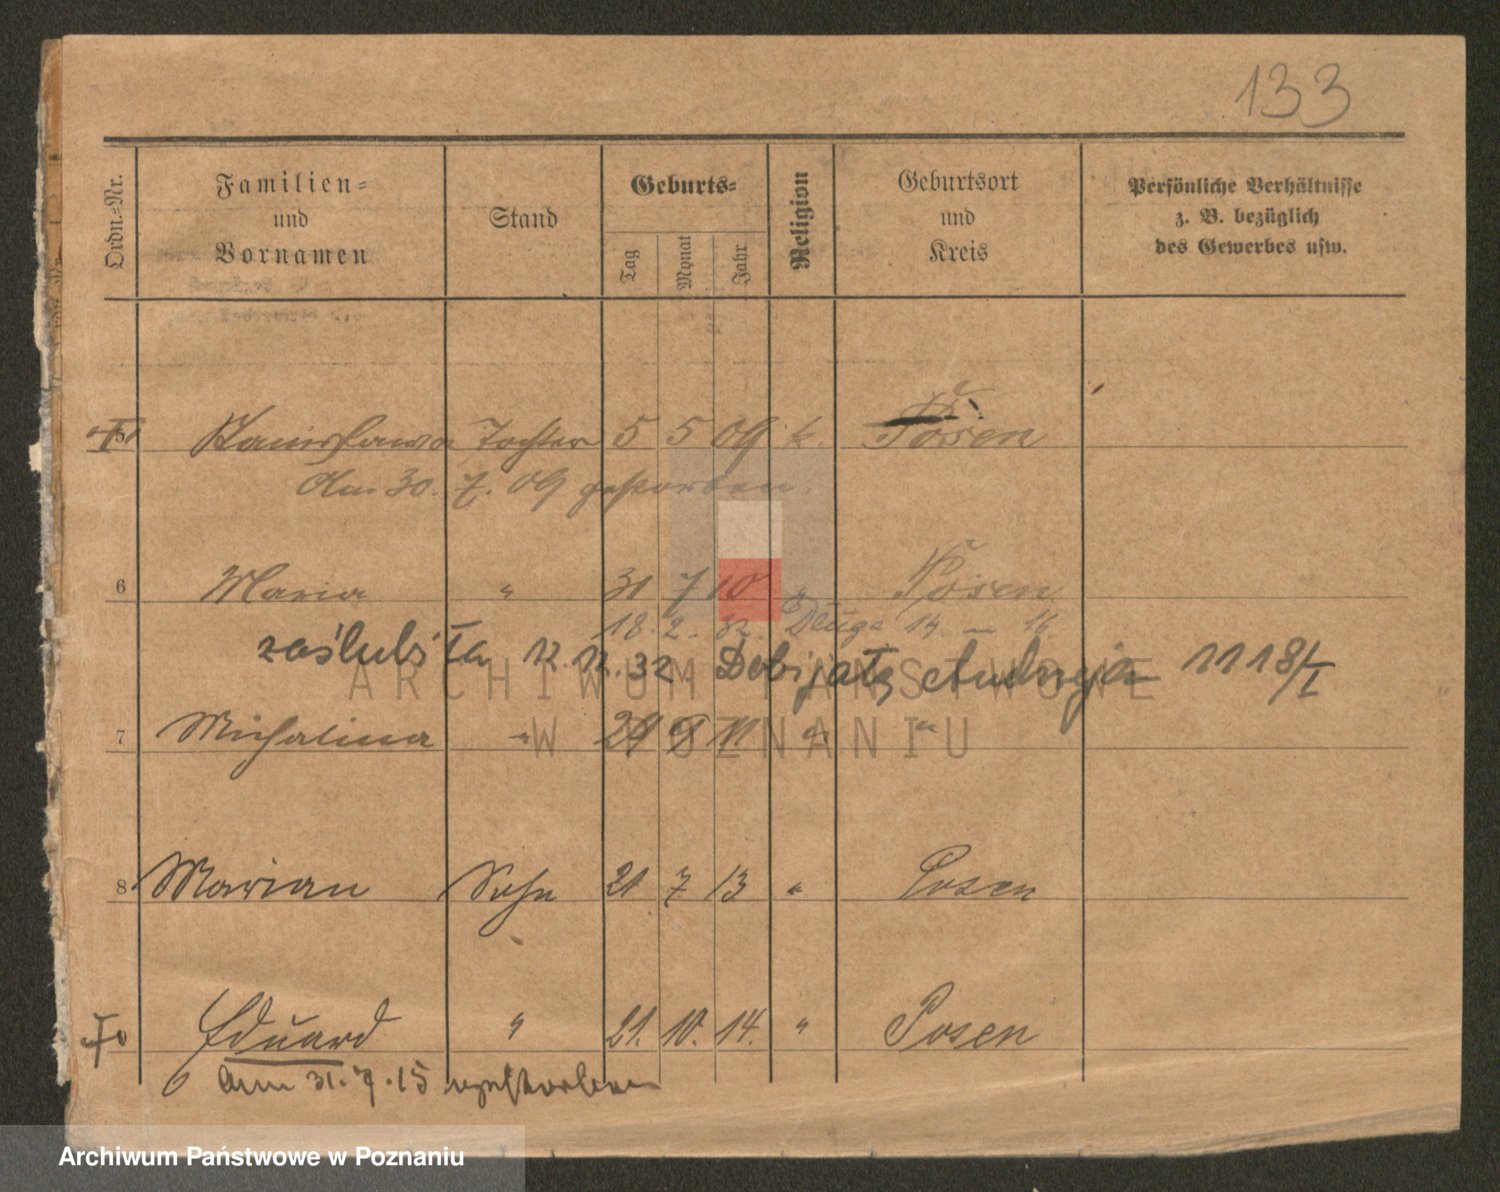 133
Ordn.-Nr.
Familien-
und
Vornamen
Stand
Geburts-
Tag
Monat
Jahr
Religion
Geburtsort
und
Kreis
Persönliche Verhältnisse
z. B. bezüglich
des Gewerbes usw.
5 Stanisława Tochter 5 5 09 k. Posen
Am 30. 7. 09 gestorben.
6 Maria " 31 7 10 " Posen
18. 2. 32. Długa 14 – 16
zaślubiła 12.12.32 Andrzeja 1118/I
ARCHIWUM PAŃSTWOWE
7 Michalina " 29 8 11 " "
W POZNANIU
8 Marian Sohn 21 7 13 " Posen
Eduard " 21. 10. 14. " Posen
Am 31.7.15 gestorben
Archiwum Państwowe w Poznaniu